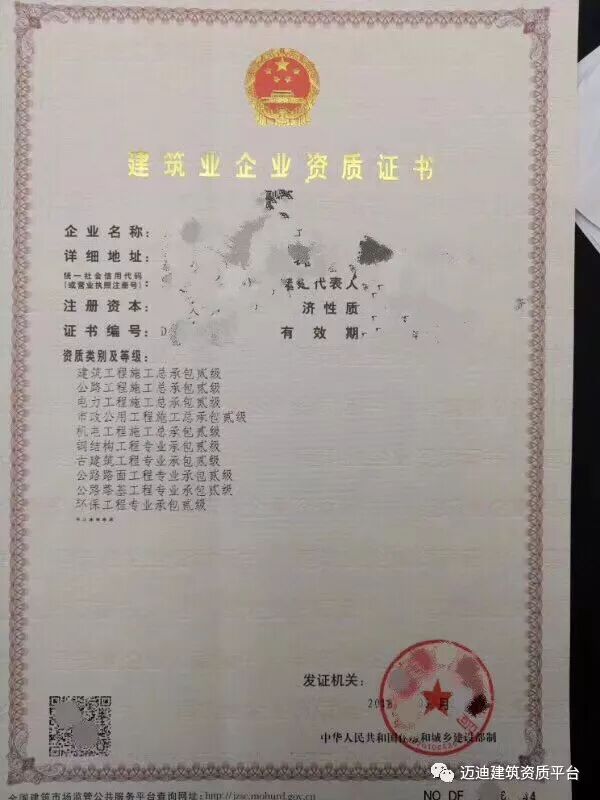 建筑业企业资质证书
企业名称：
详细地址：
统一社会信用代码
(或营业执照注册号)：
代表人
注册资本：
济性质
证书编号：D
有效期
资质类别及等级：
建筑工程施工总承包贰级
公路工程施工总承包贰级
电力工程施工总承包贰级
市政公用工程施工总承包贰级
机电工程施工总承包贰级
钢结构工程专业承包贰级
古建筑工程专业承包贰级
公路路面工程专业承包贰级
公路路基工程专业承包贰级
环保工程专业承包贰级
发证机关：
月
中华人民共和国住房和城乡建设部制
迈迪建筑资质平台
全国建筑市场监管公共服务平台查询网址：http://jzsc.mohurd.gov.cn
NO.DF